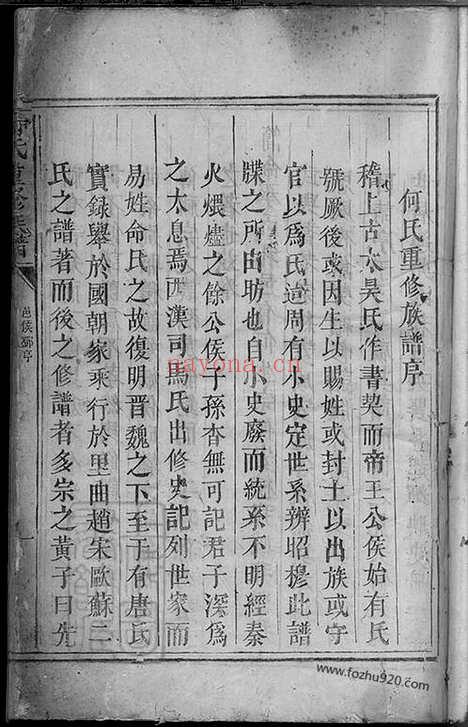 何氏重修族譜序
稽上古太昊氏作書契而帝王公侯始有氏
號厥後或因生以賜姓或封土以出族或守
官以爲氏迨周有小史定世系辨昭穆此譜
牒之所由昉也自小史廢而統系不明經秦
火煨燼之餘公侯子孫杳無可記君子深爲
之太息焉西漢司馬氏出修史記列世家而
易姓命氏之故復明晋魏之下至于有唐氏
實録舉於國朝家乘行於里曲趙宋歐蘇二
氏之譜著而後之修譜者多宗之黄子曰先
何氏重修族譜
邑侯鄧序
nayona.cn
www.fozhu920.com